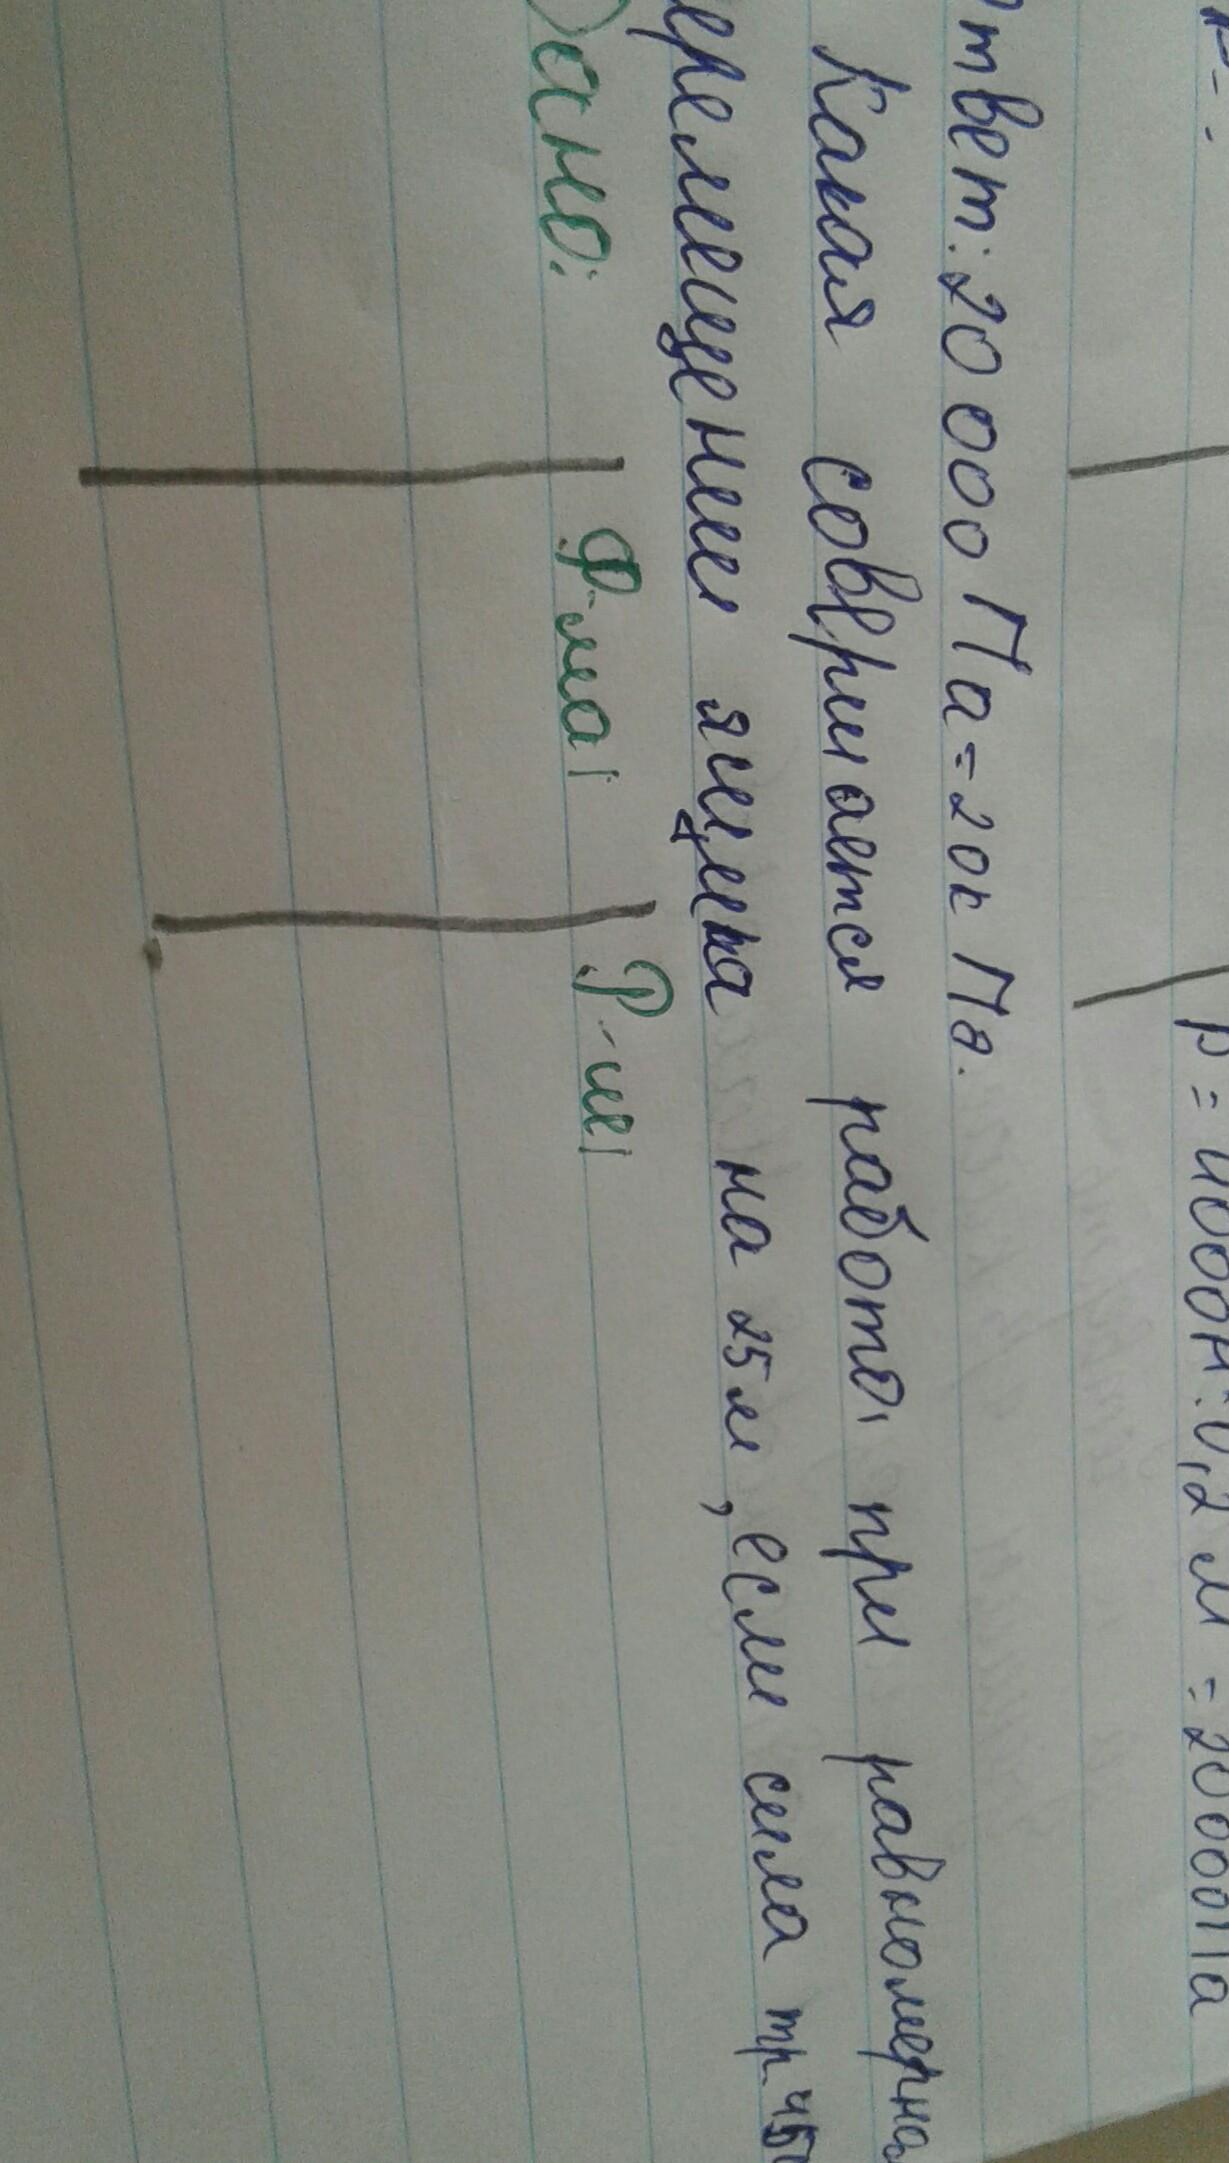 p = 4000Н:0,2 м = 20000Па
твет: 20 000 Па = 20к Па.
Какая совершается работа, при равномерна
еремещении ящика на 25м, если сила тр. 45
Дано: Ф-ла: Р-ие: